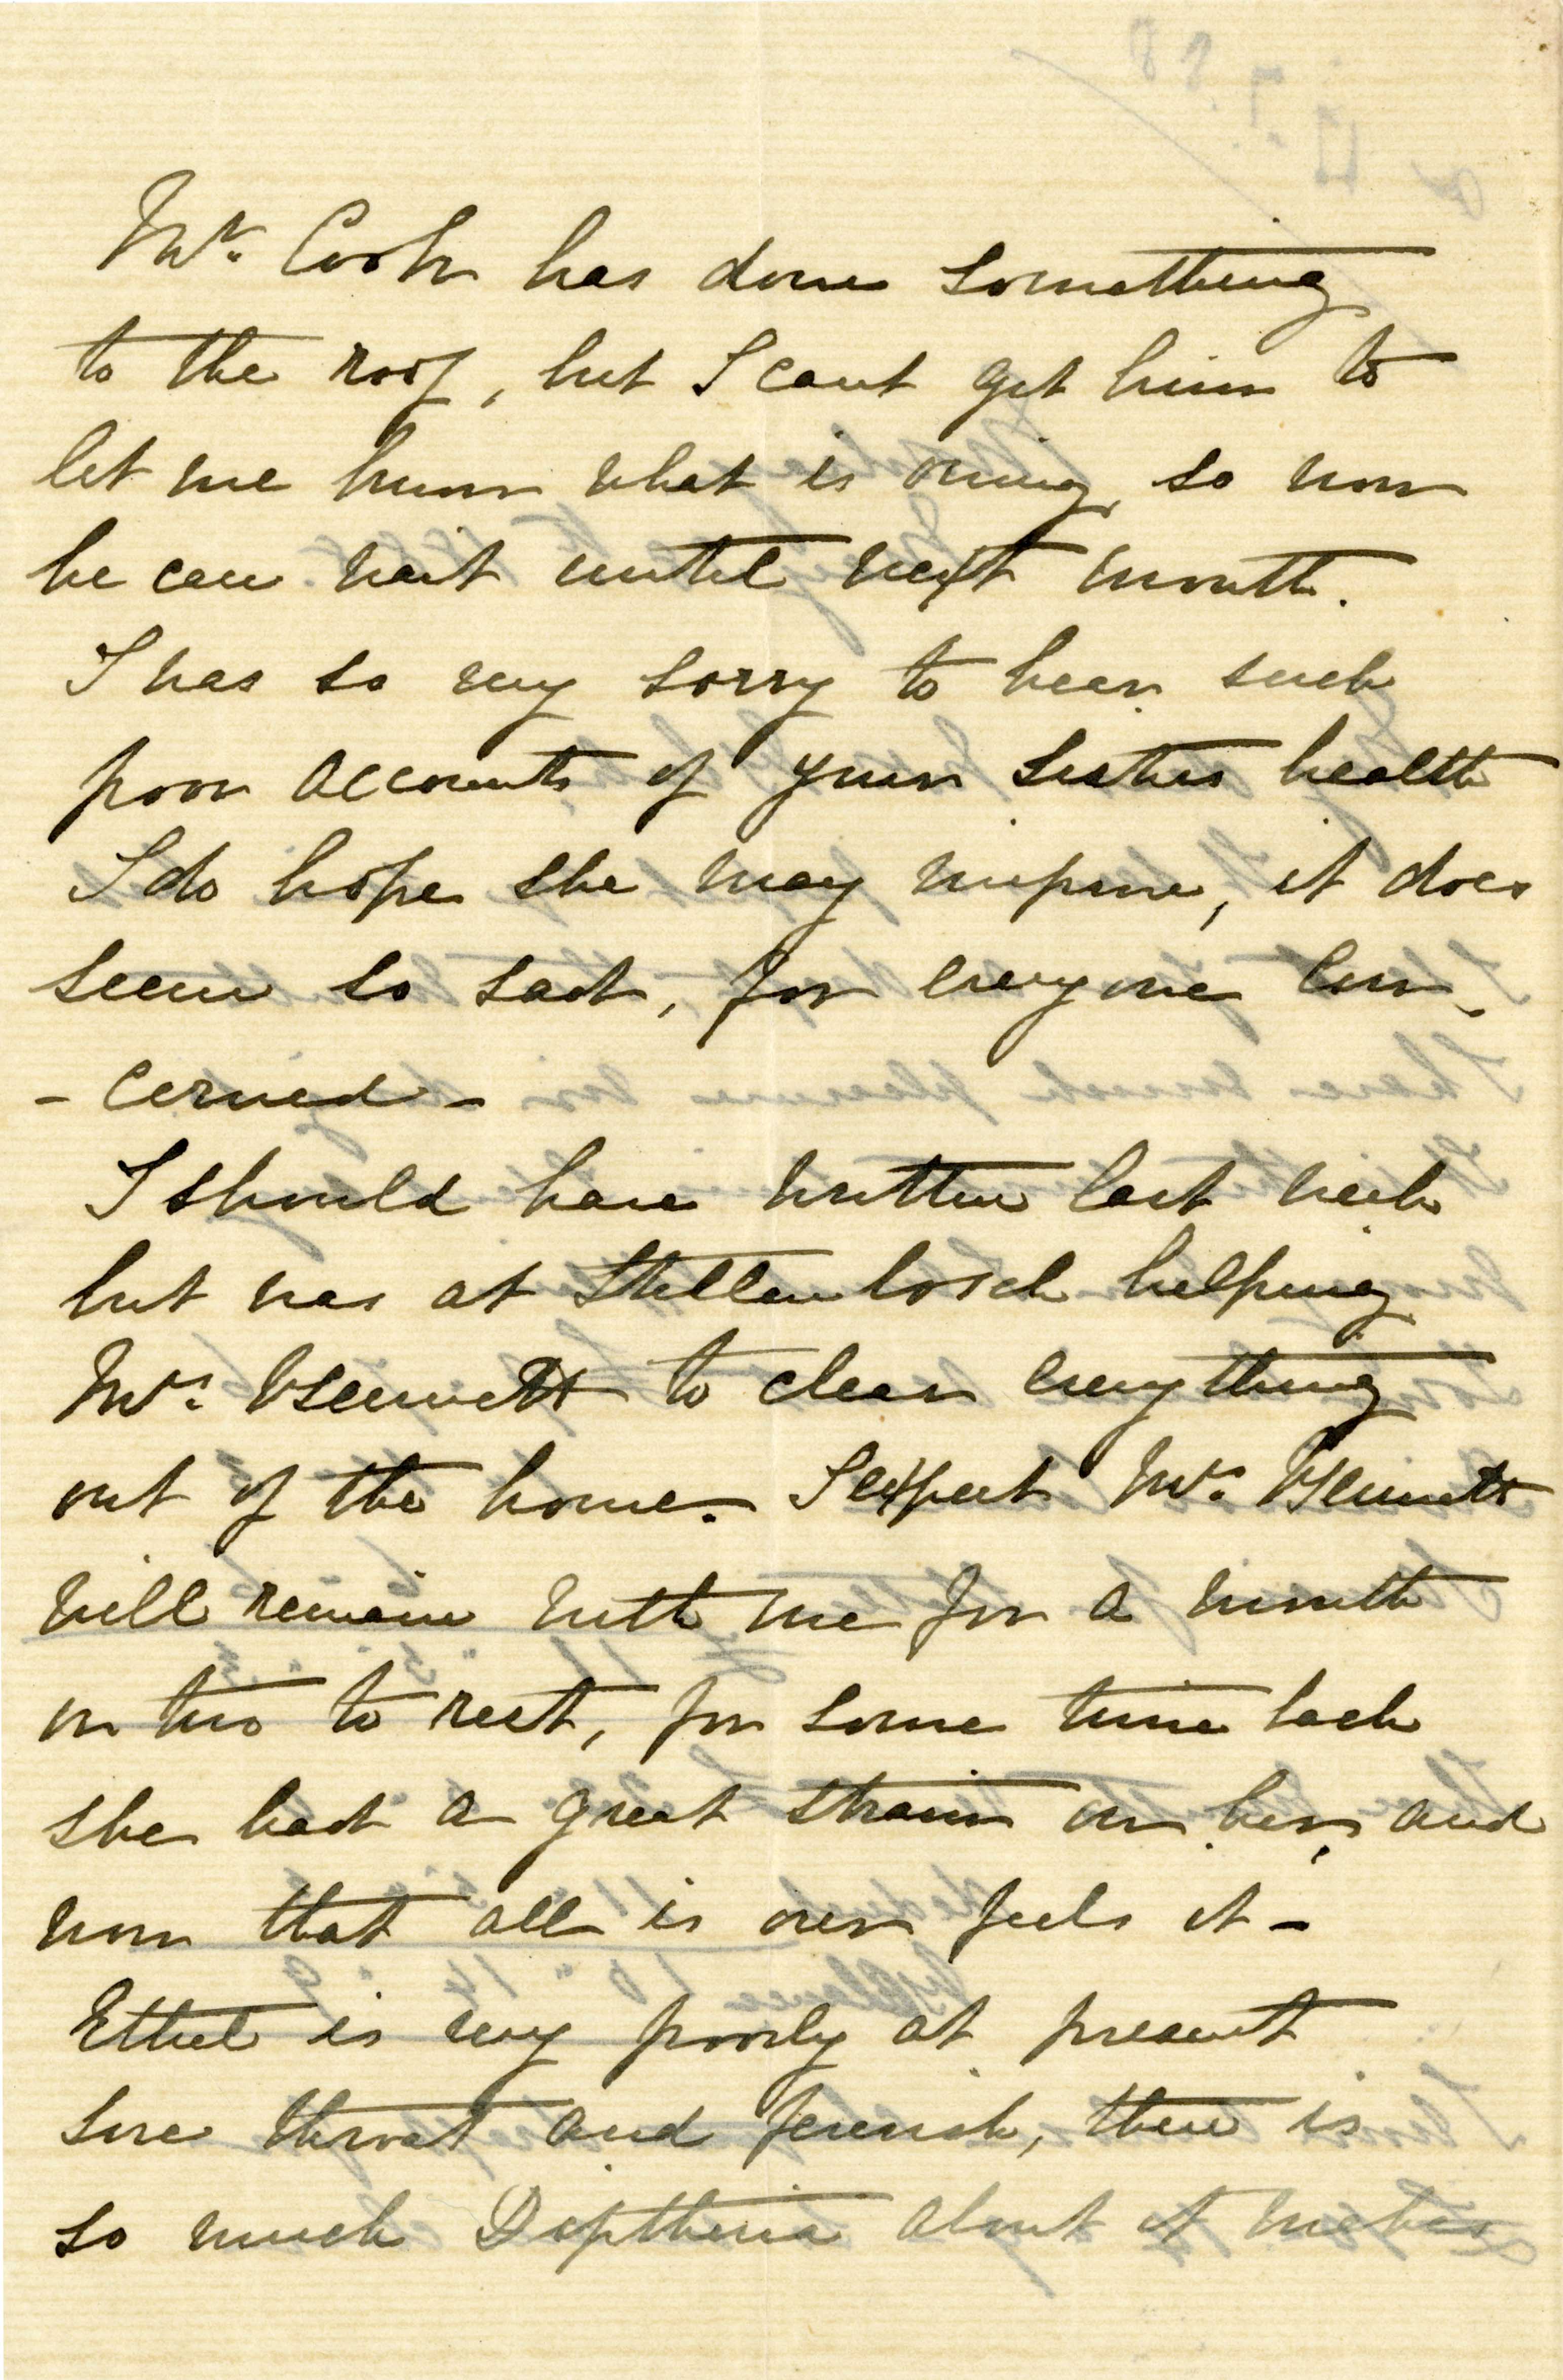 Mr. Cook has done something
to the roof, but I cant get him to
let me know what is owing, so now
he can wait until next month.
I was so very sorry to hear such
poor accounts of your sisters health
I do hope she may improve, it does
seem so sad, for everyone con-
- cerned -
I should have written last week
but was at Stellenbosch helping
Mrs. Bennett to clear everything
out of the house. I expect Mrs. Bennett
will remain with me for a month
or two to rest, for some time back
she had a great strain on her, and
now that all is over feels it -
Ethel is very poorly at present
sore throat and feverish, there is
so much Diptheria about it makes